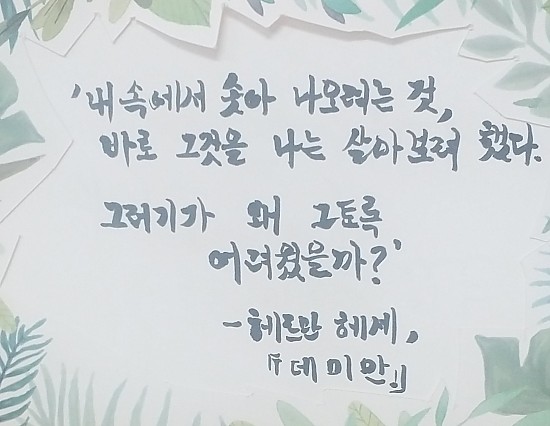 '내 속에서 솟아 나오려는 것,
바로 그것을 나는 살아보려 했다.
그러기가 왜 그토록
어려웠을까?'
- 헤르만 헤세,
『데미안』